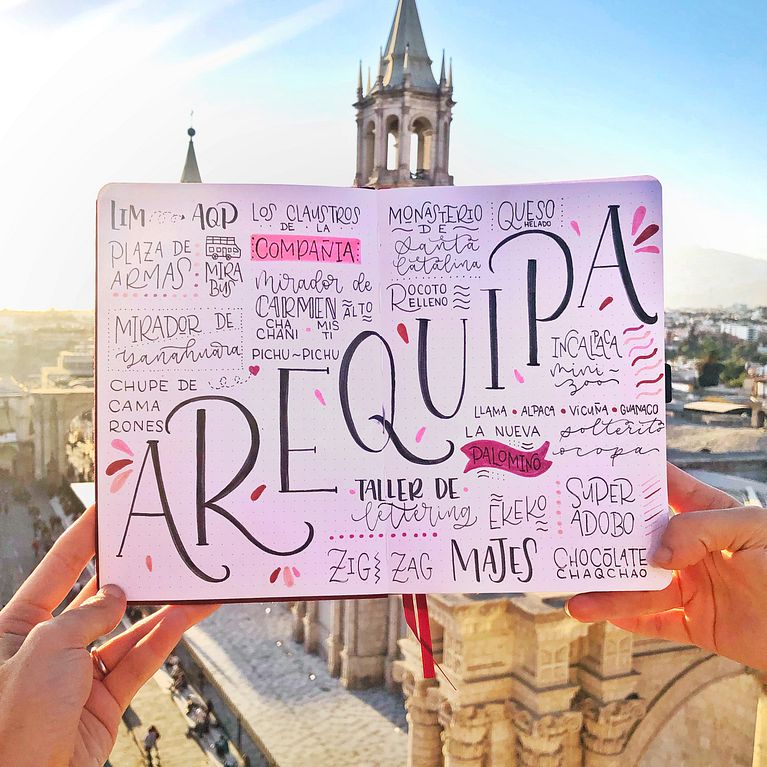 LIM AQP
PLAZA DE
ARMAS
MIRA
BUS
MIRADOR DE
Yanahuara
CHUPE DE
CAMA
RONES
LOS CLAUSTROS
DE LA
COMPAÑIA
mirador de
CARMEN
ALTO
CHA
CHANI
MIS
TI
PICHU~PICHU
AREQUIPA
MONASTERIO
DE
Santa
Catalina
QUESO
HELADO
ROCOTO
RELLENO
INCALPACA
mini-
zoo
LLAMA • ALPACA • VICUÑA • GUANACO
LA NUEVA
PALOMINO
solterito
ocopa
TALLER DE
lettering
EKEKO
SUPER
ADOBO
ZIG ZAG
MAJES
CHOCOLATE
CHAQCHAO